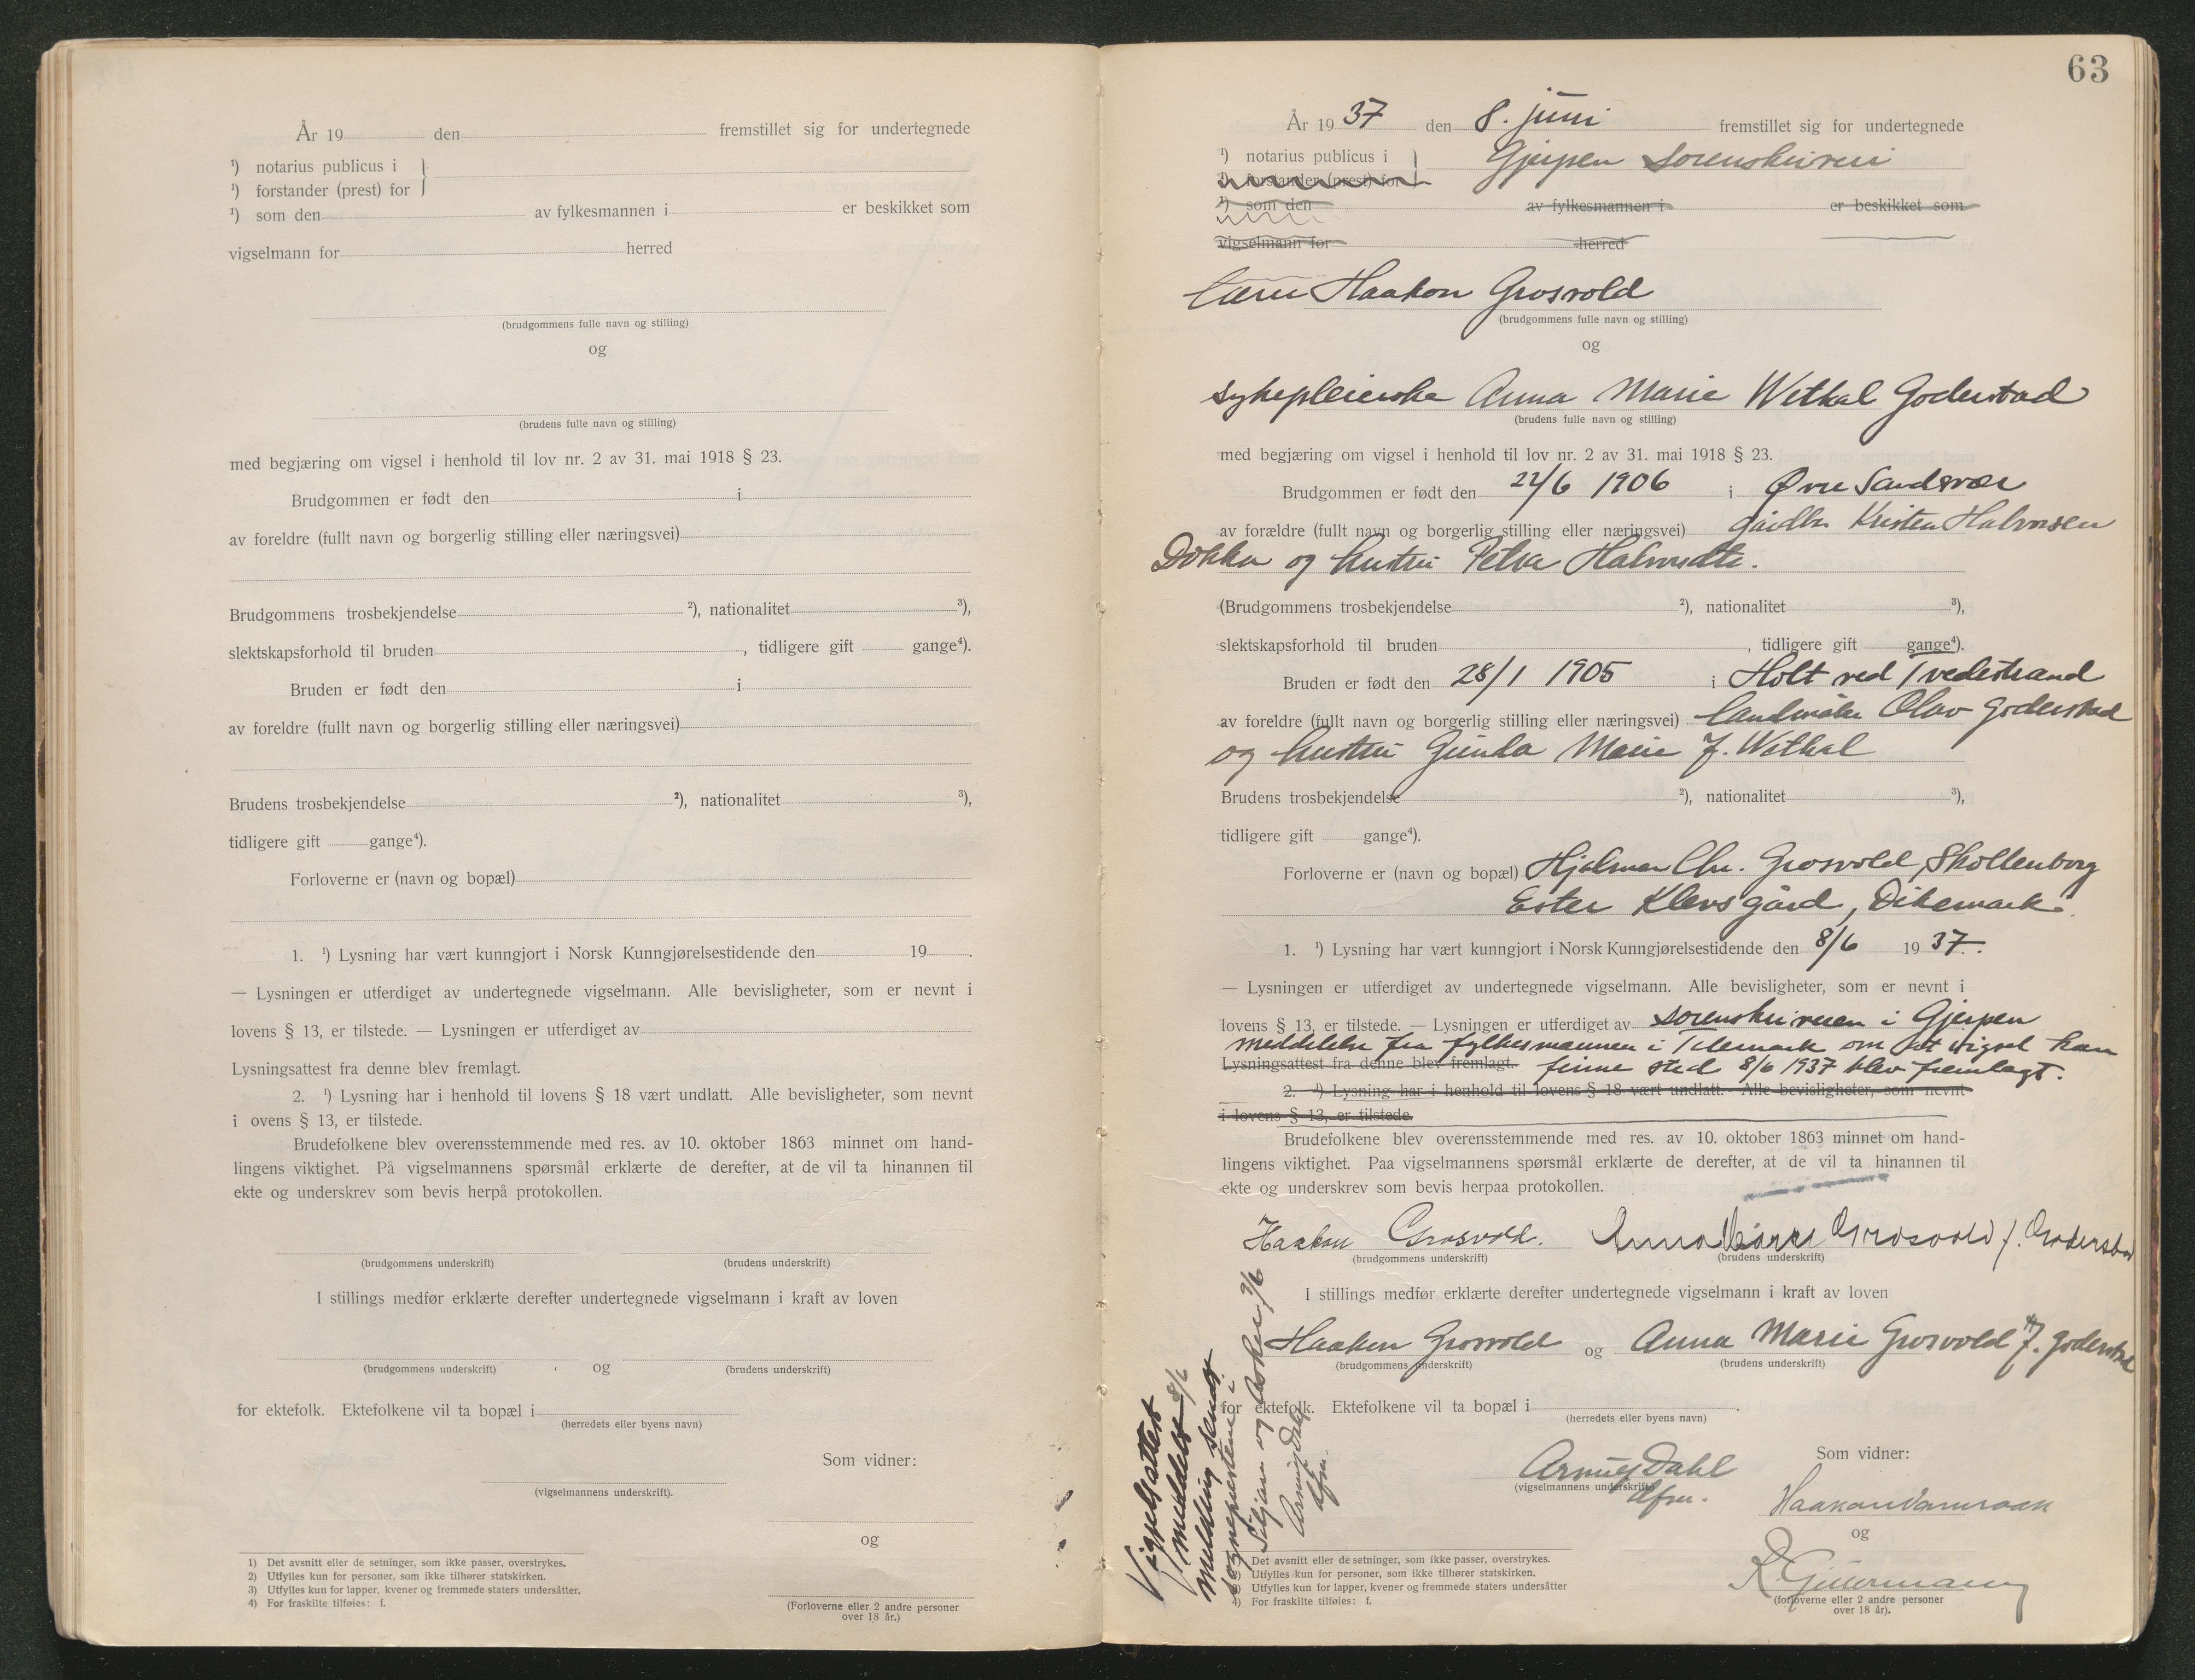 År 19 den fremstillet sig for undertegnede
¹) notarius publicus i
¹) forstander (prest) for
¹) som den av fylkesmannen i er beskikket som
vigselmann for herred
(brudgommens fulle navn og stilling)
og
(brudens fulle navn og stilling)
med begjæring om vigsel i henhold til lov nr. 2 av 31. mai 1918 § 23.
Brudgommen er født den i
av foreldre (fullt navn og borgerlig stilling eller næringsvei)
Brudgommens trosbekjendelse ²), nationalitet ³),
slektskapsforhold til bruden , tidligere gift gange⁴).
Bruden er født den i
av foreldre (fullt navn og borgerlig stilling eller næringsvei)
Brudens trosbekjendelse ²), nationalitet ³),
tidligere gift gange⁴).
Forloverne er (navn og bopæl)
1. ¹) Lysning har vært kunngjort i Norsk Kunngjørelsestidende den 19 .
— Lysningen er utferdiget av undertegnede vigselmann. Alle bevisligheter, som er nevnt i
lovens § 13, er tilstede. — Lysningen er utferdiget av
Lysningsattest fra denne blev fremlagt.
2. ¹) Lysning har i henhold til lovens § 18 vært undlatt. Alle bevisligheter, som nevnt
i ovens § 13, er tilstede.
Brudefolkene blev overensstemmende med res. av 10. oktober 1863 minnet om hand-
lingens viktighet. På vigselmannens spørsmål erklærte de derefter, at de vil ta hinannen til
ekte og underskrev som bevis herpå protokollen.
(brudgommens underskrift) (brudens underskrift)
I stillings medfør erklærte derefter undertegnede vigselmann i kraft av loven
og
(brudgommens underskrift) (brudens underskrift)
for ektefolk. Ektefolkene vil ta bopæl i
(herredets eller byens navn)
Som vidner:
(vigselmannens underskrift).
og
1) Det avsnitt eller de setninger, som ikke passer, overstrykes.
2) Utfylles kun for personer, som ikke tilhører statskirken.
3) Utfylles kun for lapper, kvener og fremmede staters undersåtter.
4) For fraskilte tilføies: f.
(Forloverne eller 2 andre personer
over 18 år.)
63
År 1937 den 8. juni fremstillet sig for undertegnede
¹) notarius publicus i Gjerpen sorenskriveri
¹) forstander (prest) for
¹) som den av fylkesmannen i er beskikket som
vigselmann for herred
Haakon Grosvold
(brudgommens fulle navn og stilling)
og
sykepleierske Anna Marie Wethal Goderstad
(brudens fulle navn og stilling)
med begjæring om vigsel i henhold til lov nr. 2 av 31. mai 1918 § 23.
Brudgommen er født den 22/6 1906 i Øvre Sandsvær
av forældre (fullt navn og borgerlig stilling eller næringsvei) gårdbr. Kristen Halvorsen
Dokka og hustru Petra Halvorsdtr.
(Brudgommens trosbekjendelse ²), nationalitet ³),
slektskapsforhold til bruden , tidligere gift gange⁴).
Bruden er født den 28/1 1905 i Holt ved Tvedestrand
av foreldre (fullt navn og borgerlig stilling eller næringsvei) landmåler Olav Goderstad
og hustru Gunda Marie f. Wethal
Brudens trosbekjendelse ²), nationalitet ³),
tidligere gift gange⁴).
Forloverne er (navn og bopæl) Hjalmar Chr. Grosvold, Skollenborg
Ester Klevsgård, Dikemark.
1. ¹) Lysning har vært kunngjort i Norsk Kunngjørelsestidende den 8/6 1937.
— Lysningen er utferdiget av undertegnede vigselmann. Alle bevisligheter, som er nevnt i
lovens § 13, er tilstede. — Lysningen er utferdiget av sorenskriveren i Gjerpen
meddelelse fra fylkesmannen i Telemark om at vigsel kan
Lysningsattest fra denne blev fremlagt. finne sted 8/6 1937 blev fremlagt.
2. ¹) Lysning har i henhold til lovens § 18 vært undlatt. Alle bevisligheter, som nevnt
i lovens § 13, er tilstede.
Brudefolkene blev overensstemmende med res. av 10. oktober 1863 minnet om hand-
lingens viktighet. Paa vigselmannens spørsmål erklærte de derefter, at de vil ta hinannen til
ekte og underskrev som bevis herpaa protokollen.
Haakon Grosvold. Anna Marie Grosvold f. Goderstad
(brudgommens underskrift) (brudens underskrift)
I stillings medfør erklærte derefter undertegnede vigselmann i kraft av loven
Haakon Grosvold og Anna Marie Grosvold f. Goderstad
(brudgommens underskrift) (brudens underskrift)
for ektefolk. Ektefolkene vil ta bopæl i .
(herredets eller byens navn)
Arnulf Dahl
(vigselmannens underskrift)
dfm.
Som vidner:
Haakon
og
(forloverne eller 2 andre personer
over 18 år).
Vigselsattest
meddelt 8/6
Melding sendt
sogneprestene i
Siljan og Asker 9/6
Arnulf Dahl
dfm.
Det avsnitt eller de setninger, som ikke passer, overstrykes.
Utfylles kun for personer, som ikke tilhører statskirken.
Utfylles kun for lapper, kvener og fremmede staters undersåtter
4) For fraskilte tilføies: f.